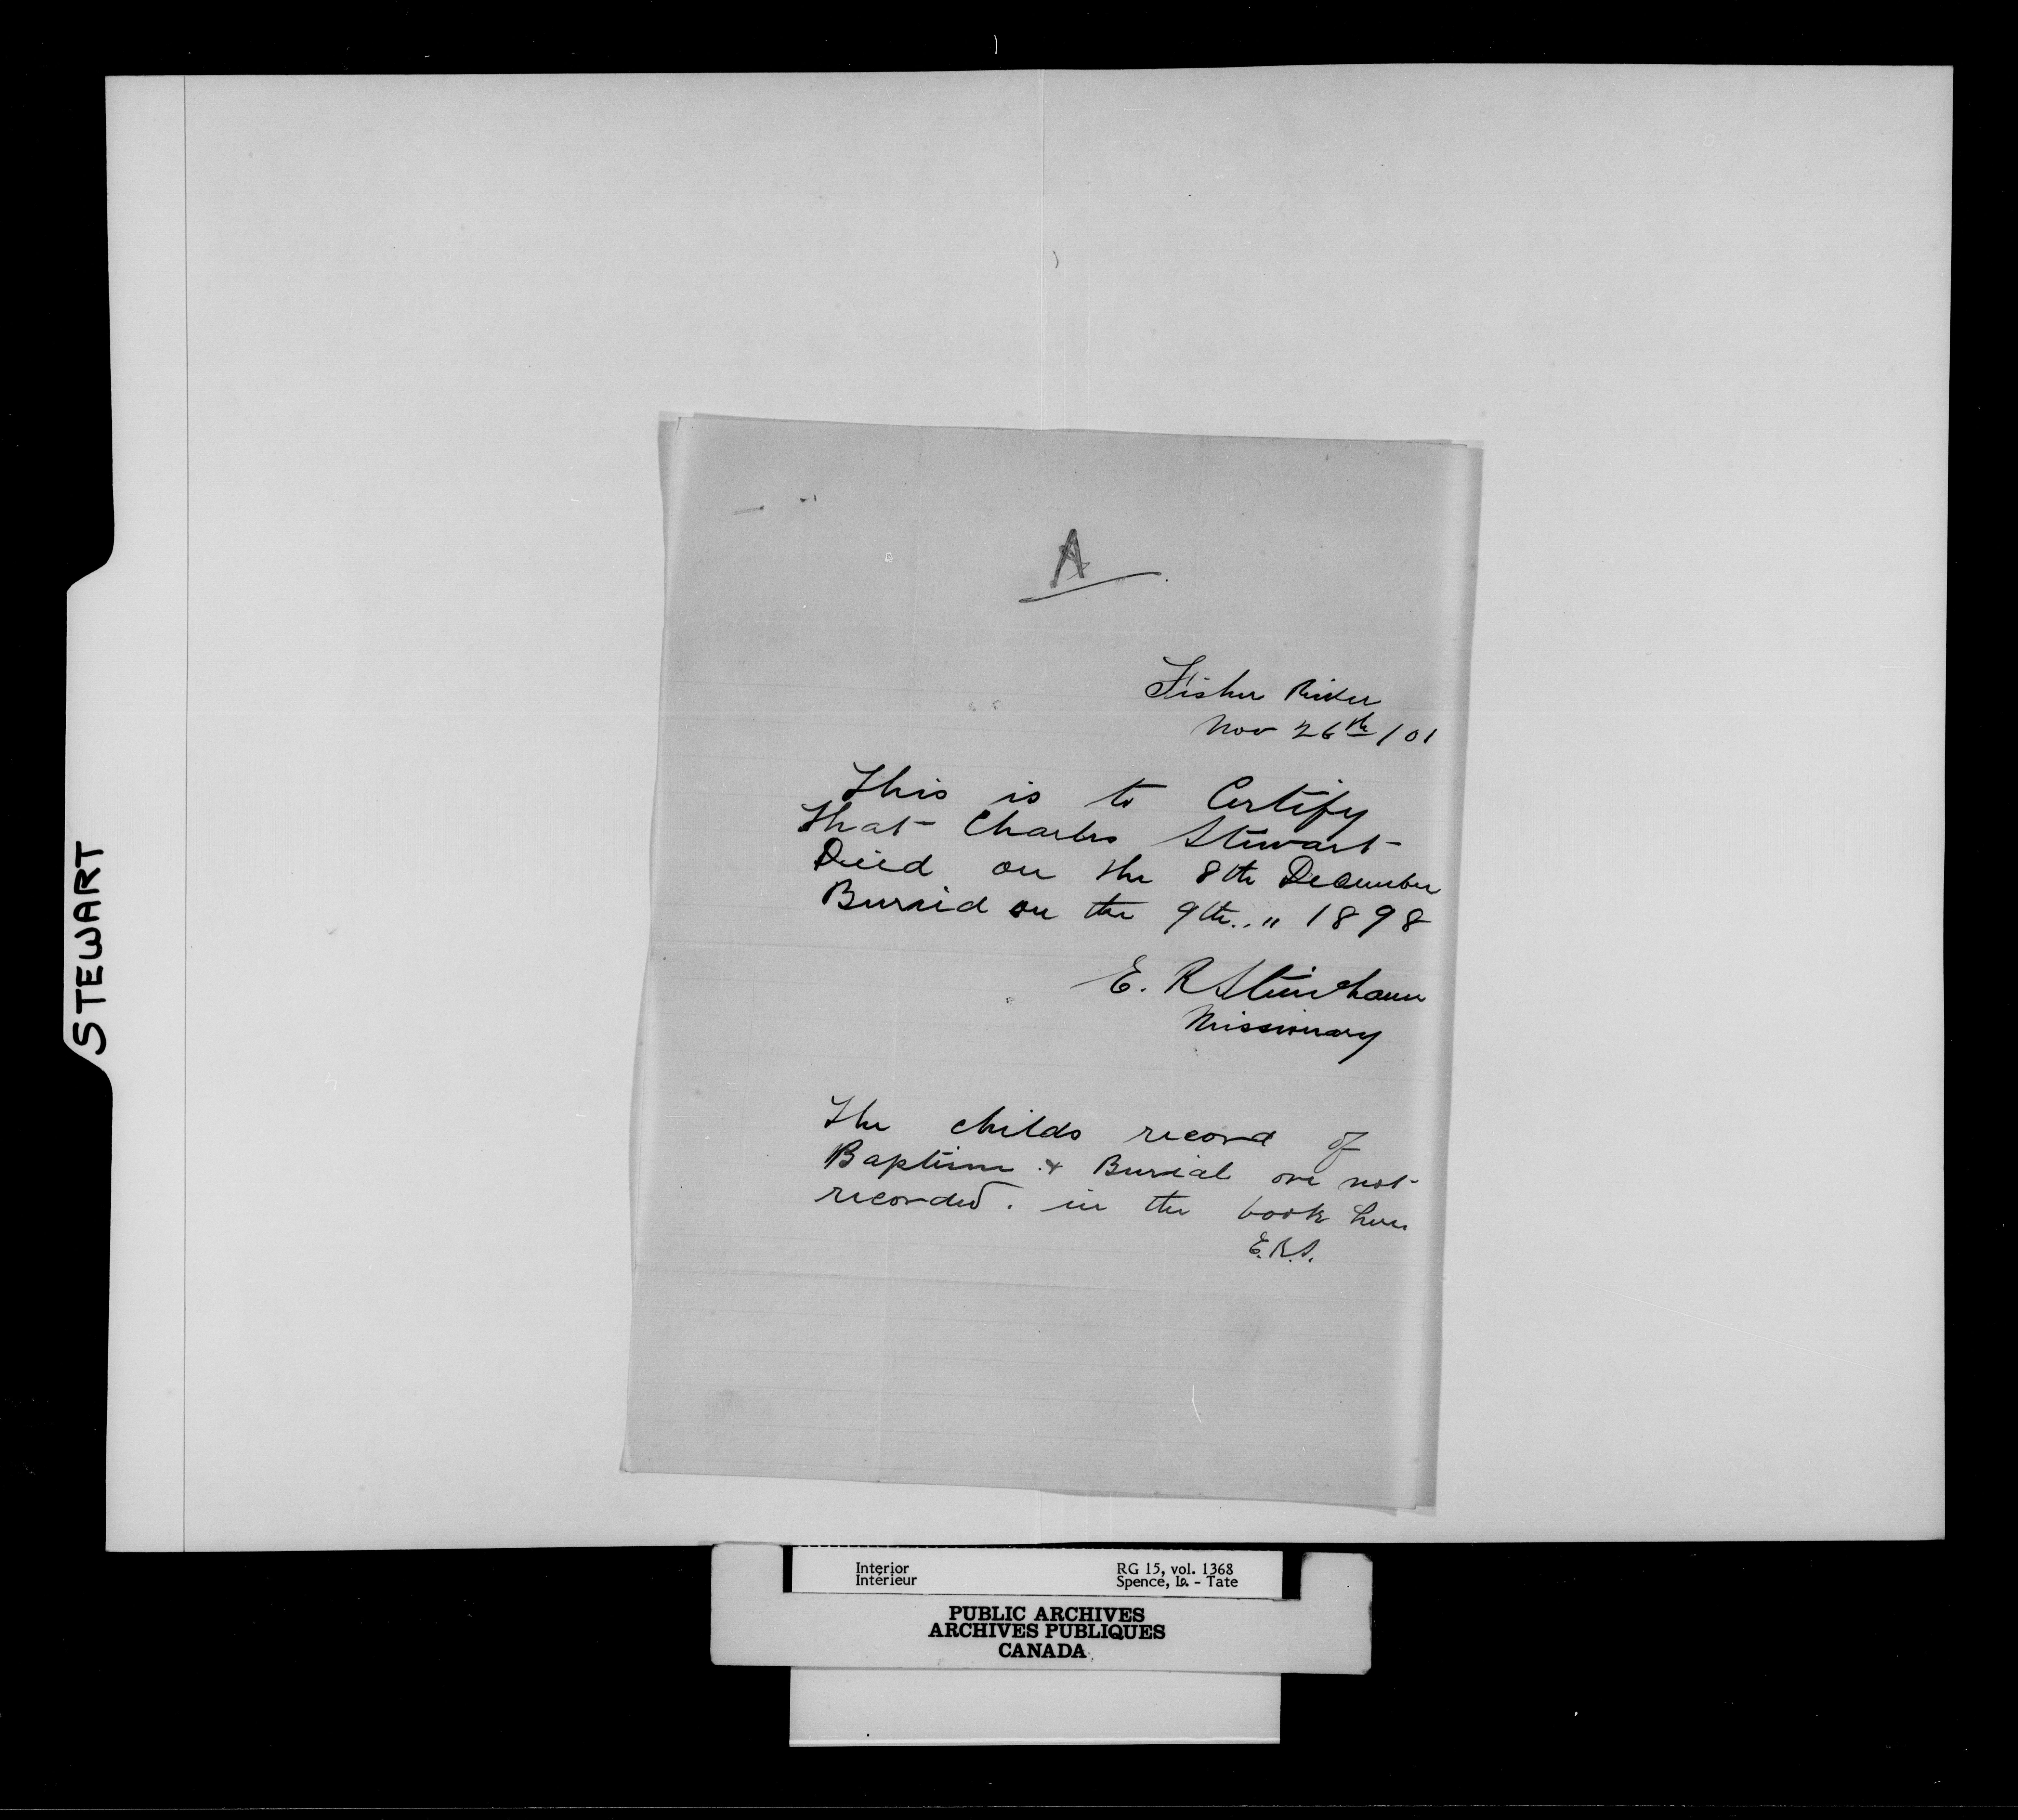 STEWART
A
Fisher River
Nov 26th/01
This is to Certify
that Charles Stewart
Died on the 8th December
Buried on the 9th " 1898
E. R Steinhauer
Missionary
The childs record of
Baptism & Burial are not
recorded. in the book here
E.R.S.
Interior RG 15, vol. 1368
Intérieur Spence, Ia. - Tate
PUBLIC ARCHIVES
ARCHIVES PUBLIQUES
CANADA